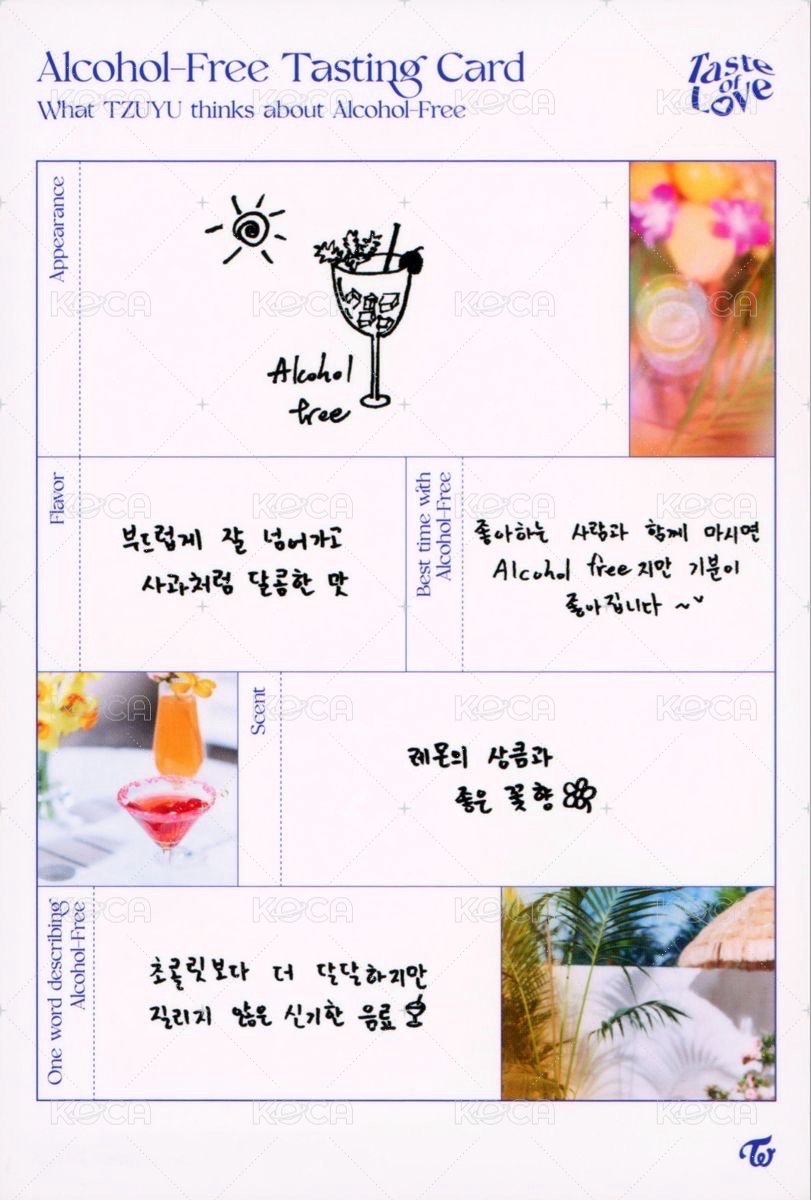 Alcohol-Free Tasting Card
What TZUYU thinks about Alcohol-Free
Taste
of
Love
Appearance
Alcohol
free
Flavor
부드럽게 잘 넘어가고
사과처럼 달콤한 맛
Best time with
Alcohol-Free
좋아하는 사람과 함께 마시면
Alcohol free지만 기분이
좋아집니다 ~
Scent
레몬의 상큼과
좋은 꽃향
One word describing
Alcohol-Free
초콜릿보다 더 달달하지만
질리지 않은 신기한 음료
KOCA